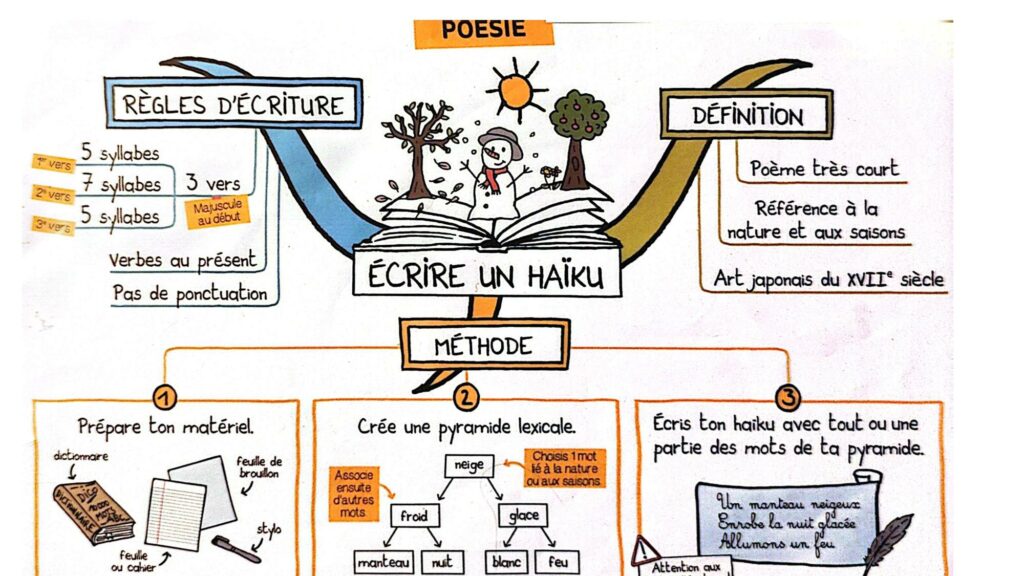 POÉSIE
RÈGLES D'ÉCRITURE
1er vers
5 syllabes
2e vers
7 syllabes
3e vers
5 syllabes
3 vers
Majuscule
au début
Verbes au présent
Pas de ponctuation
DÉFINITION
Poème très court
Référence à la
nature et aux saisons
Art japonais du XVIIe siècle
ÉCRIRE UN HAÏKU
MÉTHODE
1
Prépare ton matériel.
dictionnaire
DICO
10 000
MOTS
ABC
DICTIONNAIRE
feuille de
brouillon
stylo
feuille
ou cahier
2
Crée une pyramide lexicale.
neige
Choisis 1 mot
lié à la nature
ou aux saisons
Associe
ensuite
d'autres
mots
froid
glace
manteau
nuit
blanc
feu
3
Écris ton haïku avec tout ou une
partie des mots de ta pyramide.
Un manteau neigeux
Enrobe la nuit glacée
Allumons un feu
Attention aux